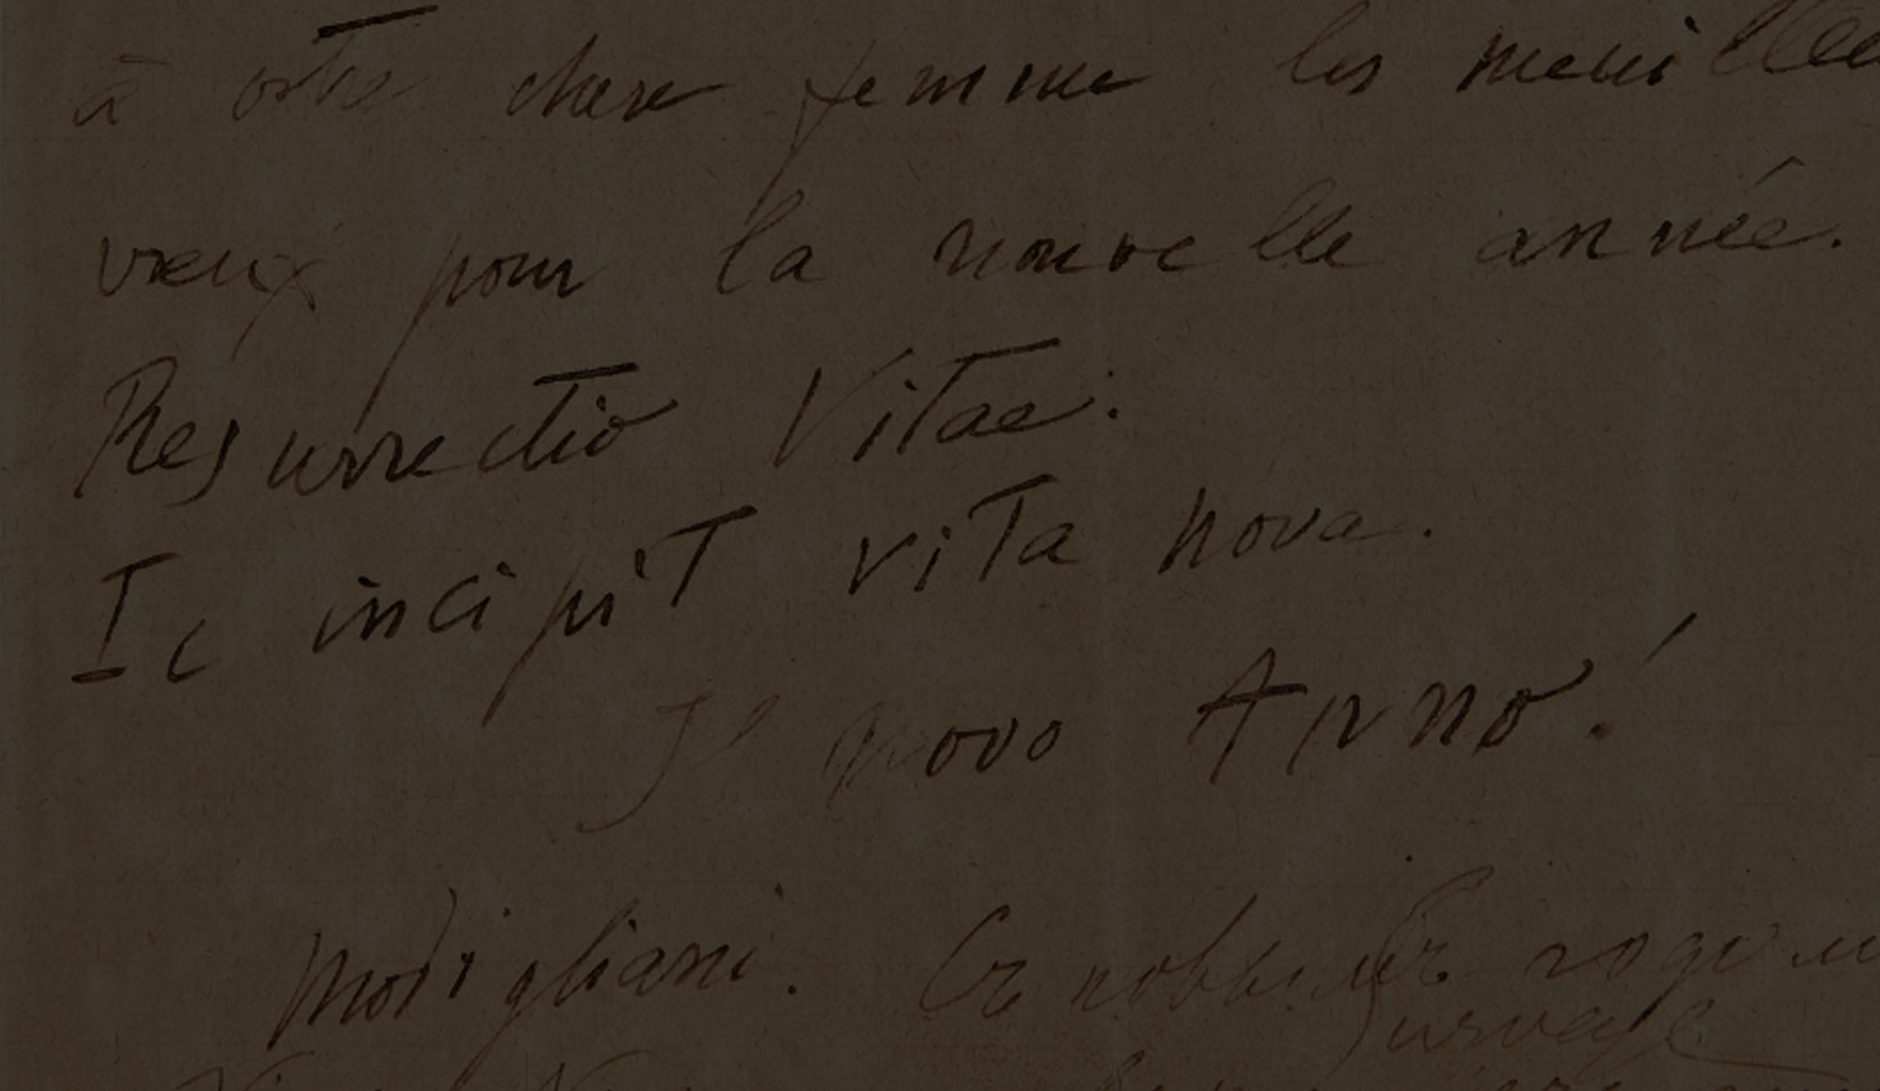 à votre chere femme les meuilleu
vœux pour la nouvelle année.
Resurrectio Vitae.
Ic incipit vita nova.
Il novo Anno!
Modigliani. Съ новымъ годом
Survage